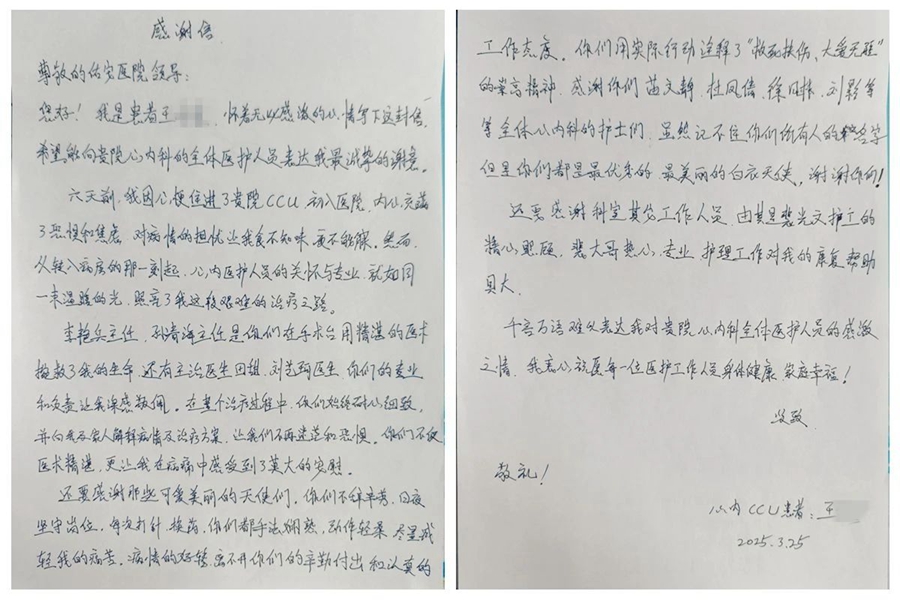 感谢信
尊敬的佑安医院领导:
您好! 我是患者王 怀着无比感激的心情写下这封信,
希望能向贵院心内科的全体医护人员表达我最诚挚的谢意。
六天前,我因心梗住进了贵院CCU 初入医院,内心充满
了恐惧和焦虑,对病情的担忧让我食不知味 夜不能寐。然而,
从转入病房的那一刻起,心内医护人员的关怀与专业,就如同
一束温暖的光,照亮了我这段艰难的治疗之路。
李艳兵主任,孙海主任是你们在手术台用精湛的医术
拯救了我的生命,还有主治医生田祖,刘医生,你们的专业
和负责让我深感敬佩。在整个治疗过程中,你们始终耐心细致,
并向我及家人解释病情及治疗方案,让我们不再迷茫和恐惧。你们不仅
医术精湛,更让我在病痛中感受到了莫大的安慰
还要感谢那些可爱美丽的天使们,你们不辞辛劳,日夜
坚守岗位,每次打针、换药,你们都手法娴熟,动作轻柔 尽量减
轻我的痛苦。病情的好转 离不开你们的辛勤付出和认真的
工作态度。你们用实际行动诠释了“救死扶伤、大爱无疆”
的崇高精神。感谢你们 苗文静、杜凤倩、徐、刘影等
等全体心内科的护士们,虽然记不住你们所有人的名字
但是你们都是最优秀的 最美丽的白衣天使,谢谢你们!
还要感谢科室其他工作人员,尤其是裴光文护工的
精心照顾,裴大哥热心、专业 护理工作对我的康复帮助
巨大。
千言万语难以表达我对贵院心内科全体医护人员的感激
之情,我衷心祝愿每一位医护工作人员身体健康 家庭幸福!
此致
敬礼!
心内CCU患者:王
2025.3.25